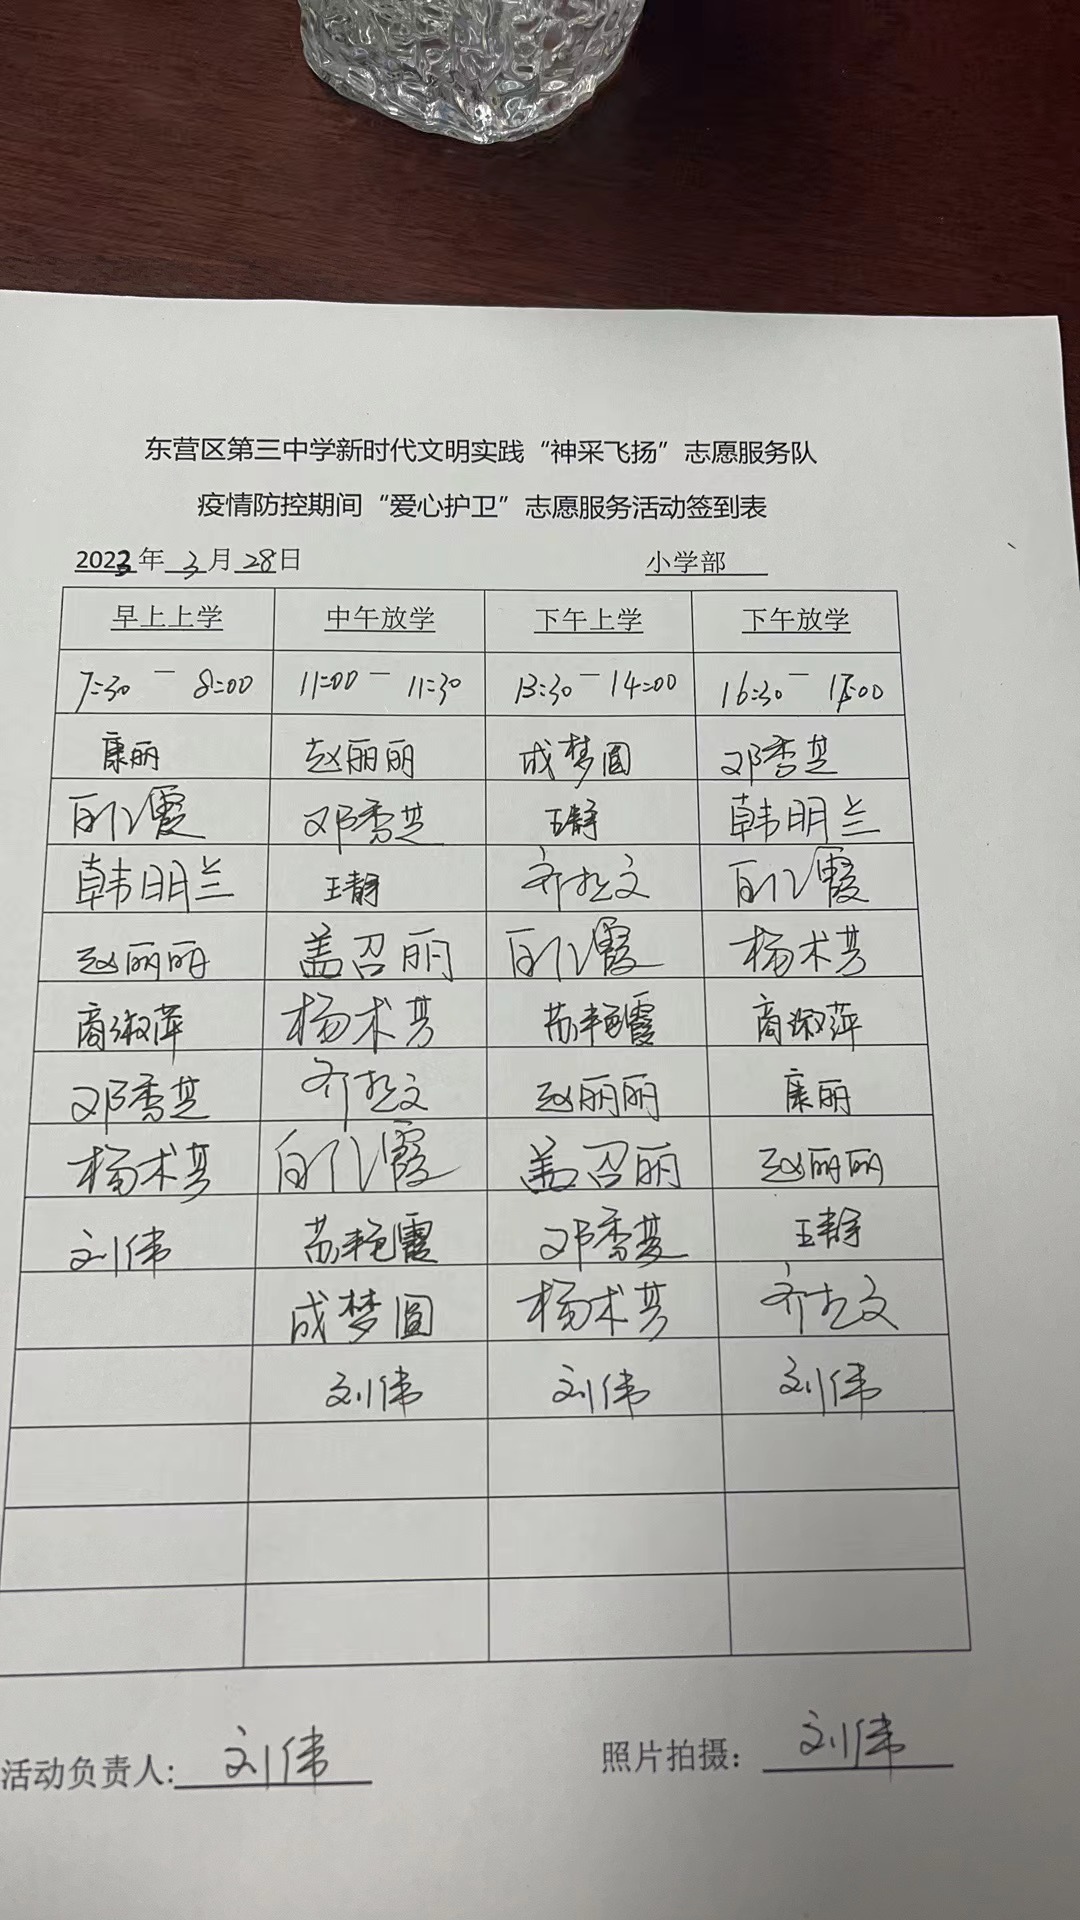 东营区第三中学新时代文明实践“神采飞扬”志愿服务队
疫情防控期间“爱心护卫”志愿服务活动签到表
2023年 3月 28日 小学部
早上上学 中午放学 下午上学 下午放学
7:30 — 8:00 11:00 — 11:30 13:30 — 14:00 16:30 — 17:00
康丽 赵丽丽 成梦圆 邓秀芝
霞 邓秀芝 王静 韩明兰
韩明兰 王静 齐 文 霞
赵丽丽 盖召丽 霞 杨术芳
商淑萍 杨术芳 苏艳霞 商淑萍
邓秀芝 齐 文 赵丽丽 康丽
杨术芳 霞 盖召丽 赵丽丽
刘伟 苏艳霞 邓秀芝 王静
成梦圆 杨术芳 齐 文
刘伟 刘伟 刘伟
活动负责人: 刘伟 照片拍摄: 刘伟